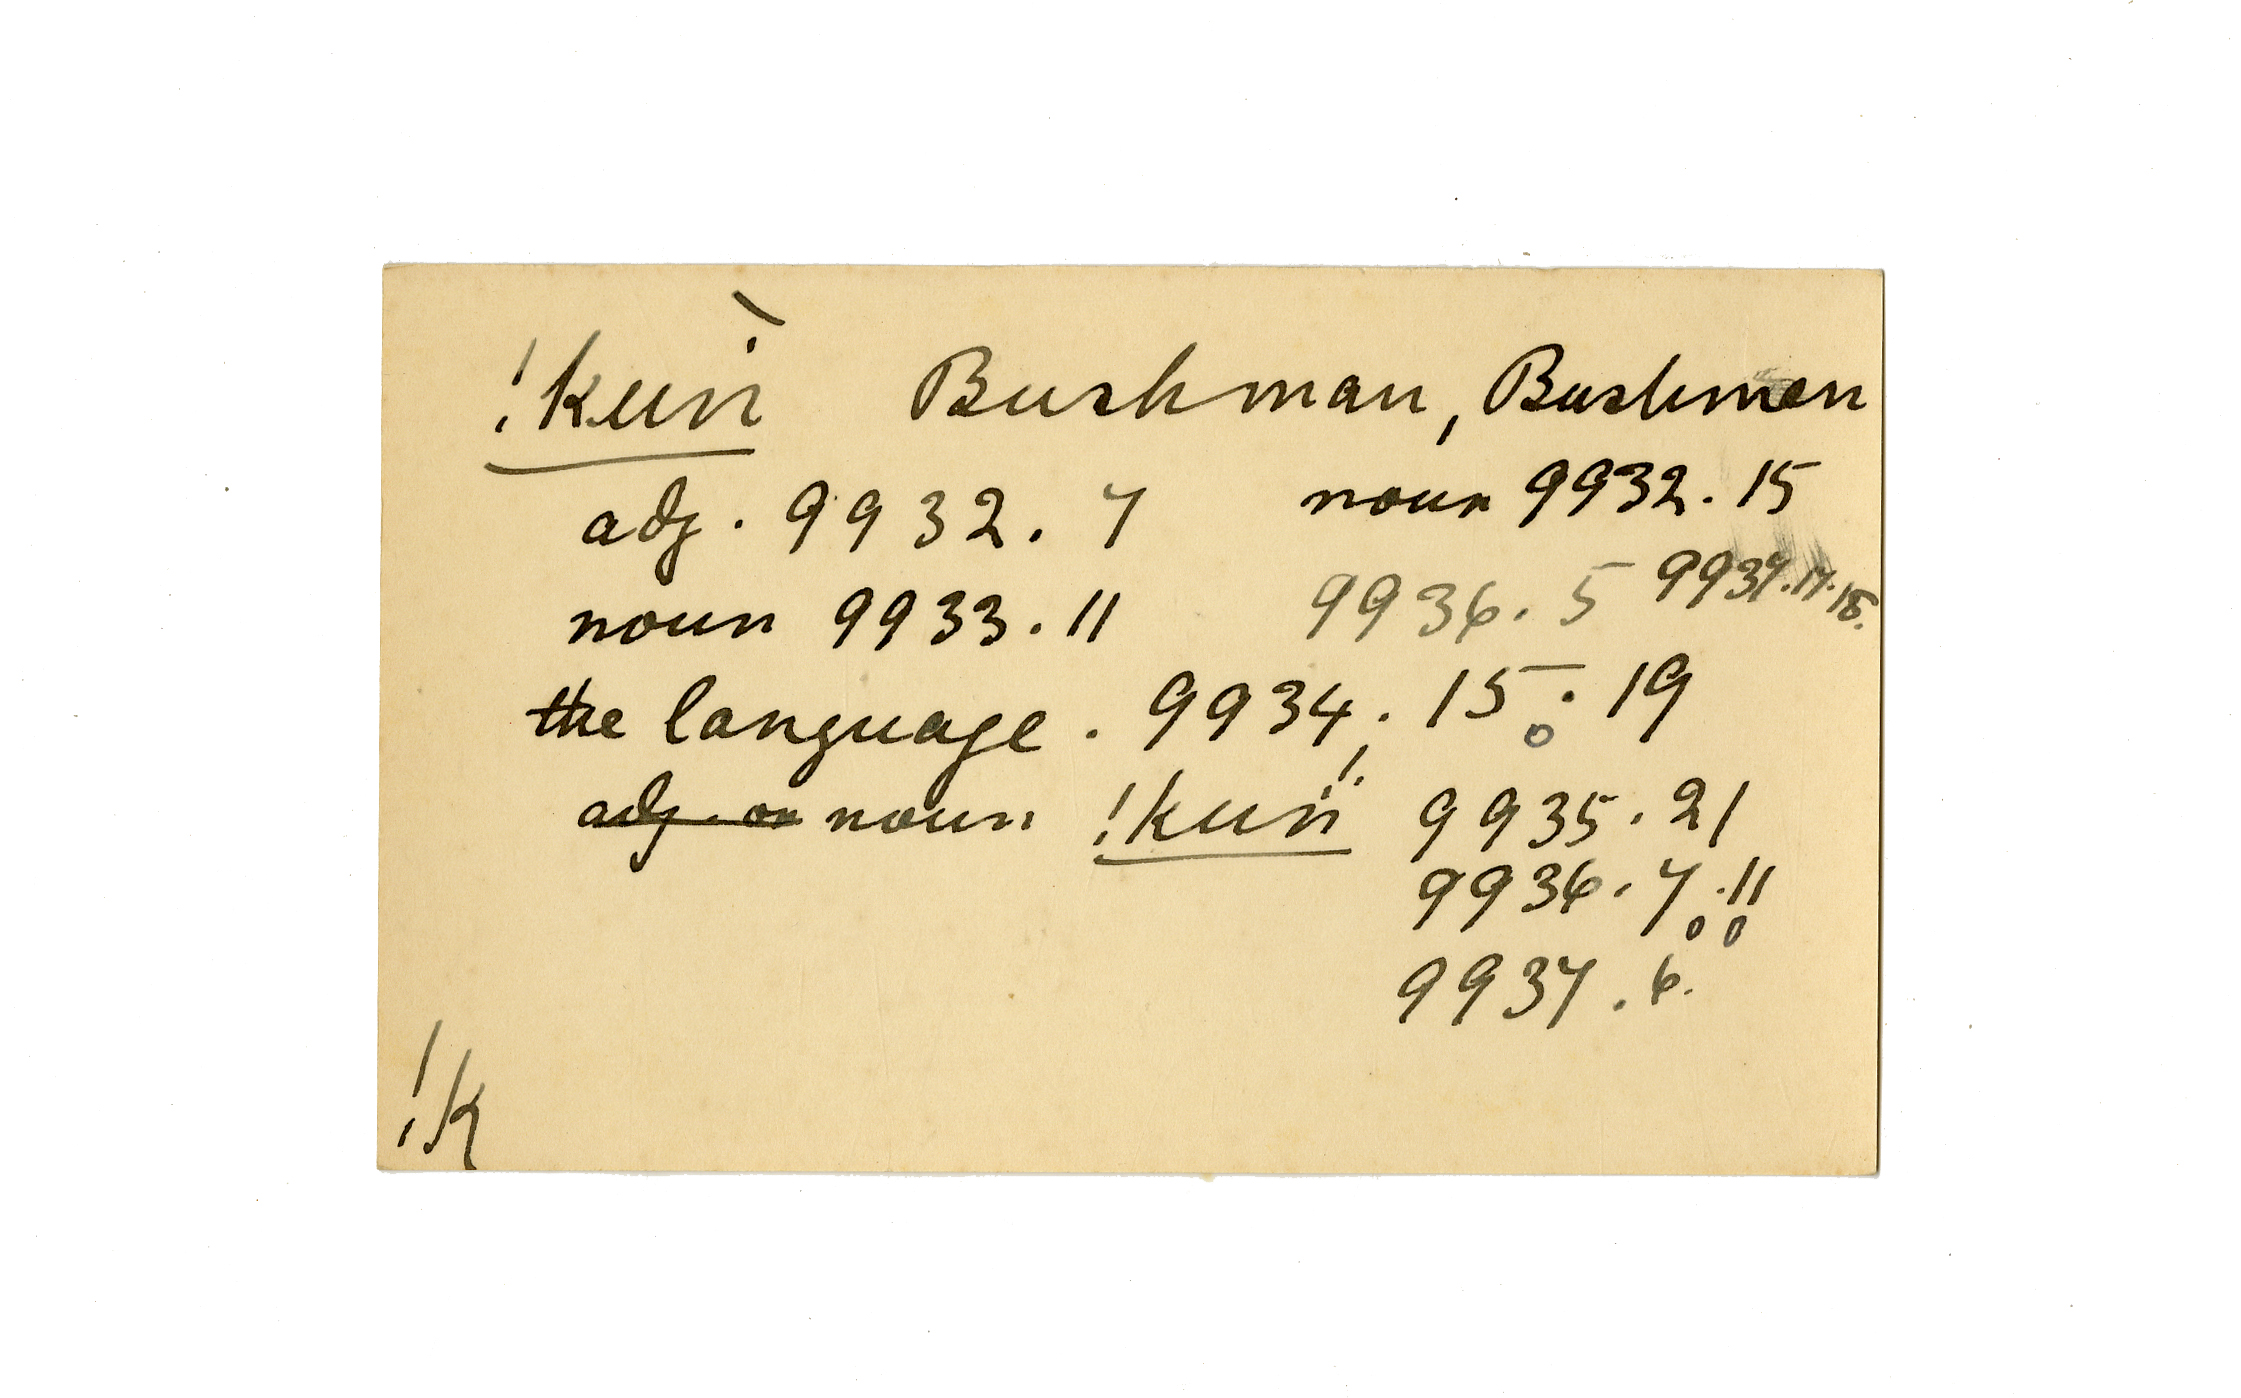 !kuṅ̀ Bushman, Bushmen
adj. 9932. 7 noun 9932. 15
noun 9933. 11 9936. 5 9937. 17. 18.
the language. 9934. 15. 19
~~adj. or~~ noun !kuṅ 9935. 21
9936. 7. 11
9937. 6.
!k